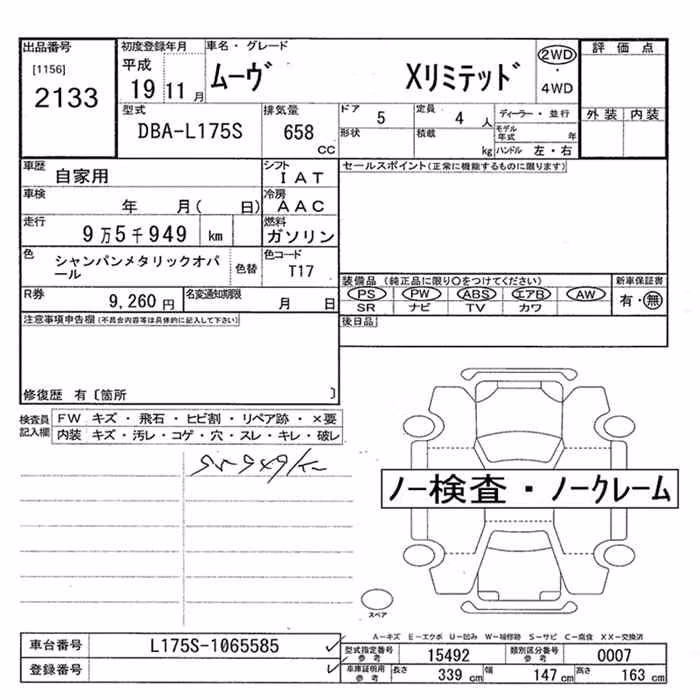 出品番号 初度登録年月 車名・グレード 評価点
[1156] 平成
2133 19 11月 ムーヴ Xリミテッド 2WD・4WD
外装 内装
型式 排気量 ドア 定員 ディーラー・並行
DBA-L175S 658 CC 5 4 人
形状 積載 kg モデル年式 年
ハンドル 左・右
車歴 自家用 シフト IAT セールスポイント(正常に機能するものに限ります)
車検 年 月( 日) 冷房 AAC
走行 9万5千949 km 燃料 ガソリン
色 シャンパンメタリックオパール 色替 色コード T17
装備品 (純正品に限り〇をつけてください) 新車保証書
PS PW ABS エアB AW 有・無
SR ナビ TV カワ
R券 9,260円 名変通知期限 月 日
後日品
注意事項申告欄(不具合内容等は具体的に記入して下さい)
修復歴 有〔箇所 〕
検査員記入欄 FW キズ・飛石・ヒビ割・リペア跡・×要
内装 キズ・汚レ・コゲ・穴・スレ・キレ・破レ
ノー検査・ノークレーム
スペア
A-キズ E-エクボ U-凹み W-補修跡 S-サビ C-腐食 XX-交換済
車台番号 L175S-1065585
登録番号
型式指定番号 参考 15492 類別区分番号 参考 0007
車庫証明用 参考 長さ 339 cm 幅 147 cm 高さ 163 cm